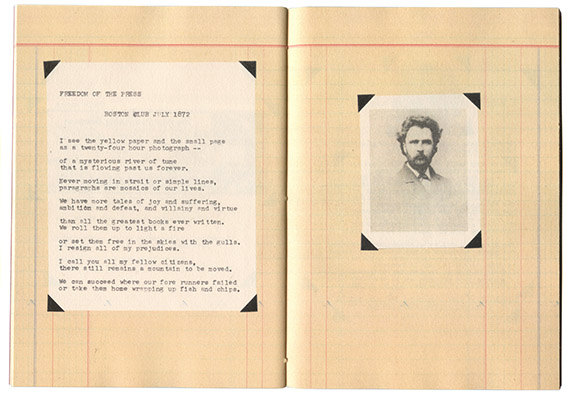 FREEDOM OF THE PRESS
BOSTON CLUB JULY 1872
I see the yellow paper and the small page
as a twenty-four hour photograph --
of a mysterious river of
that is flowing past us forever.
Never moving in strait or simple lines,
paragraphs are mosaics of our lives.
We have more tales of joy and suffering,
ambition and defeat, and villainy and virtue
than all the greatest books ever written.
We roll them up to light a fire
or set them free in the skies with the gulls.
I resign all of my prejudices.
I call you all my fellow citizens,
there still remains a mountain to be moved.
We can succeed where our fore runners failed
or take them home wrapping up fish and chips.